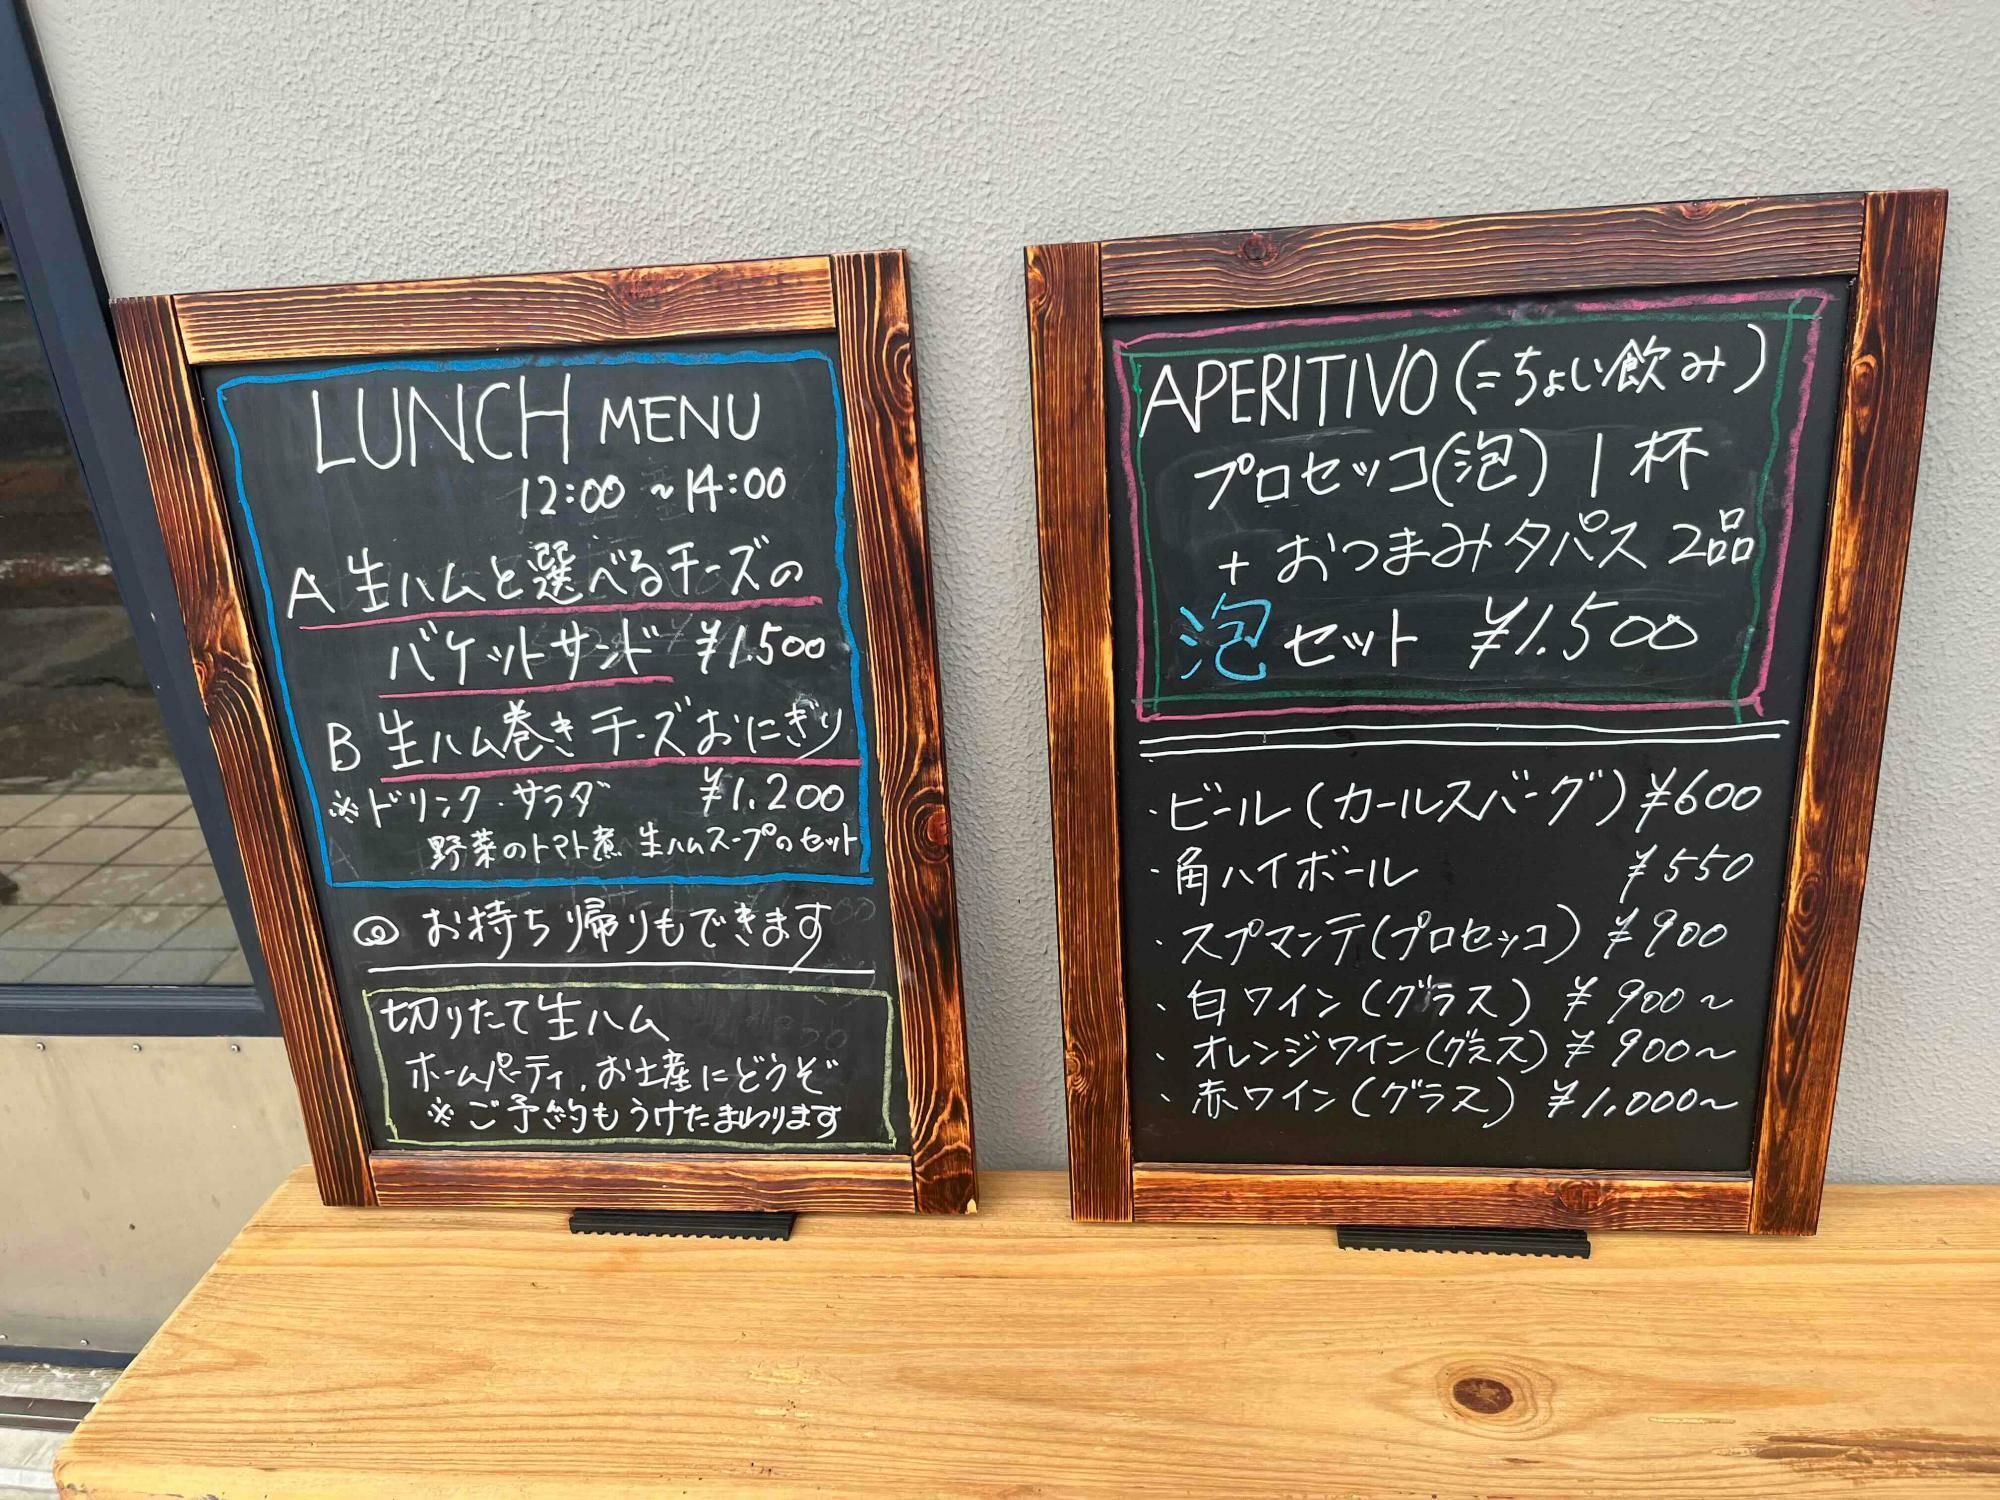 LUNCH MENU
12:00 ~ 14:00
A 生ハムと選べるチーズの
バケットサンド ¥1.500
B 生ハム巻きチーズおにぎり
※ドリンク・サラダ ¥1.200
野菜のトマト煮 生ハムスープのセット
◎ お持ち帰りもできます
切りたて生ハム
ホームパーティ、お土産にどうぞ
※ご予約もうけたまわります
APERITIVO (=ちょい飲み)
プロセッコ(泡) 1杯
+ おつまみタパス 2品
泡セット ¥1.500
・ビール(カールスバーグ) ¥600
・角ハイボール ¥550
・スプマンテ(プロセッコ) ¥900
・白ワイン(グラス) ¥900~
・オレンジワイン(グラス) ¥900~
・赤ワイン(グラス) ¥1,000~